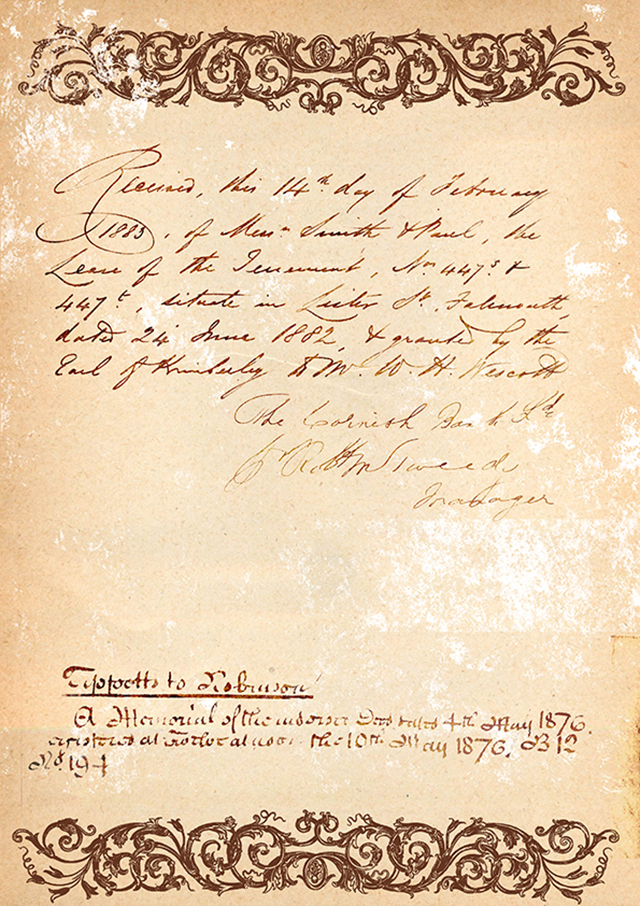 Received, this 14th day of February
1883, of Messrs Smith & Paul, the
Lease of the Tenement, Nos 447s &
447t, situate in Lister St. Falmouth,
dated 24 June 1882, & granted by the
Earl of Kimberley to Mr. W. H. Wescott
The Cornish Bank Ld
Tweed
Manager
Tippetts to Robinson
A Memorial of the Deed dated 4th May 1876.
registered at the 10th May 1876. B 12
No 194